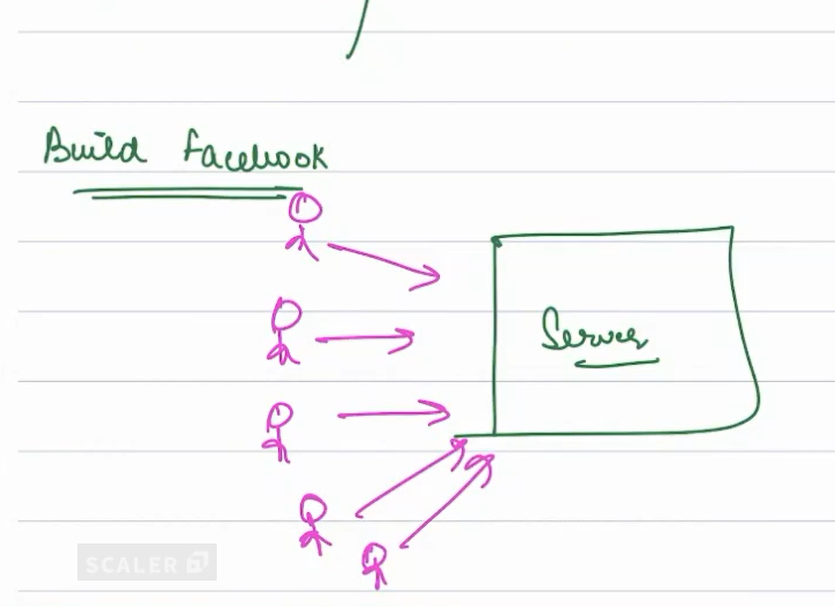 Build Facebook
Server
SCALER